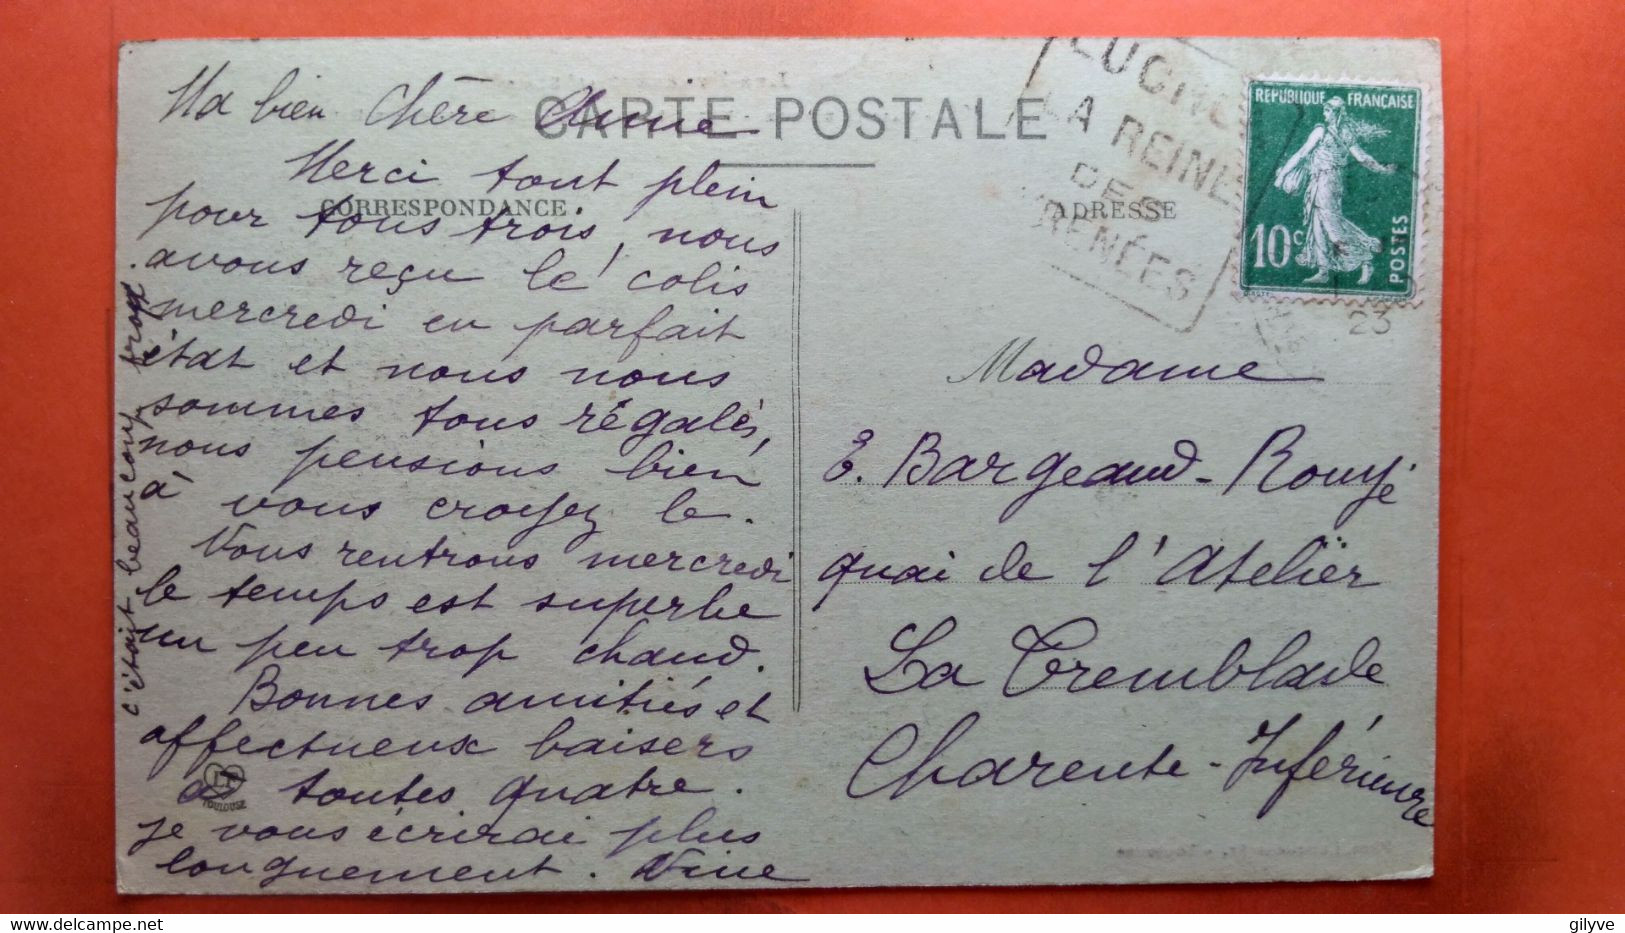 Ma bien Chère Annie
CARTE POSTALE
CORRESPONDANCE
Merci tout plein
pour tous trois, nous
avons reçu le colis
mercredi en parfait
état et nous nous
sommes tous régalés,
nous pensions bien
à vous croyez le.
Nous rentrons mercredi
le temps est superbe
un peu trop chaud.
Bonnes amitiés et
affectueux baisers
à toutes quatre.
je vous écrirai plus
longuement.
c'était beaucoup trop.
TOULOUSE
LUCHON
LA REINE
DES
PYRENÉES
23
REPUBLIQUE FRANÇAISE
10c
POSTES
ADRESSE
Madame
E. Bargeaud-Rouyé
quai de l'Atelier
La Tremblade
Charente-Inférieure
gilyve